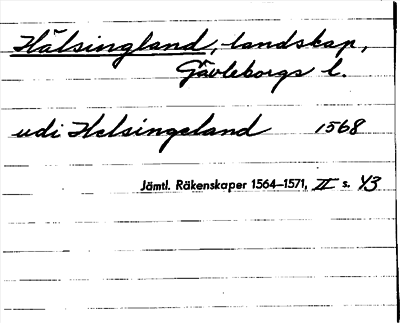 Hälsingland, landskap,
Gävleborgs l.
udi Helsingeland 1568
Jämtl. Räkenskaper 1564–1571, II s. 43